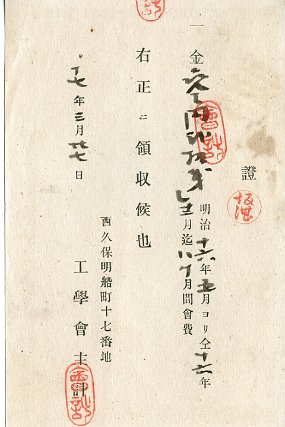 證
一金
明治十六年五月ヨリ仝十六年
十二月迄八ケ月間會費
右正ニ領収候也
十七年三月廿七日
西久保明船町十七番地
工學會主計
會計